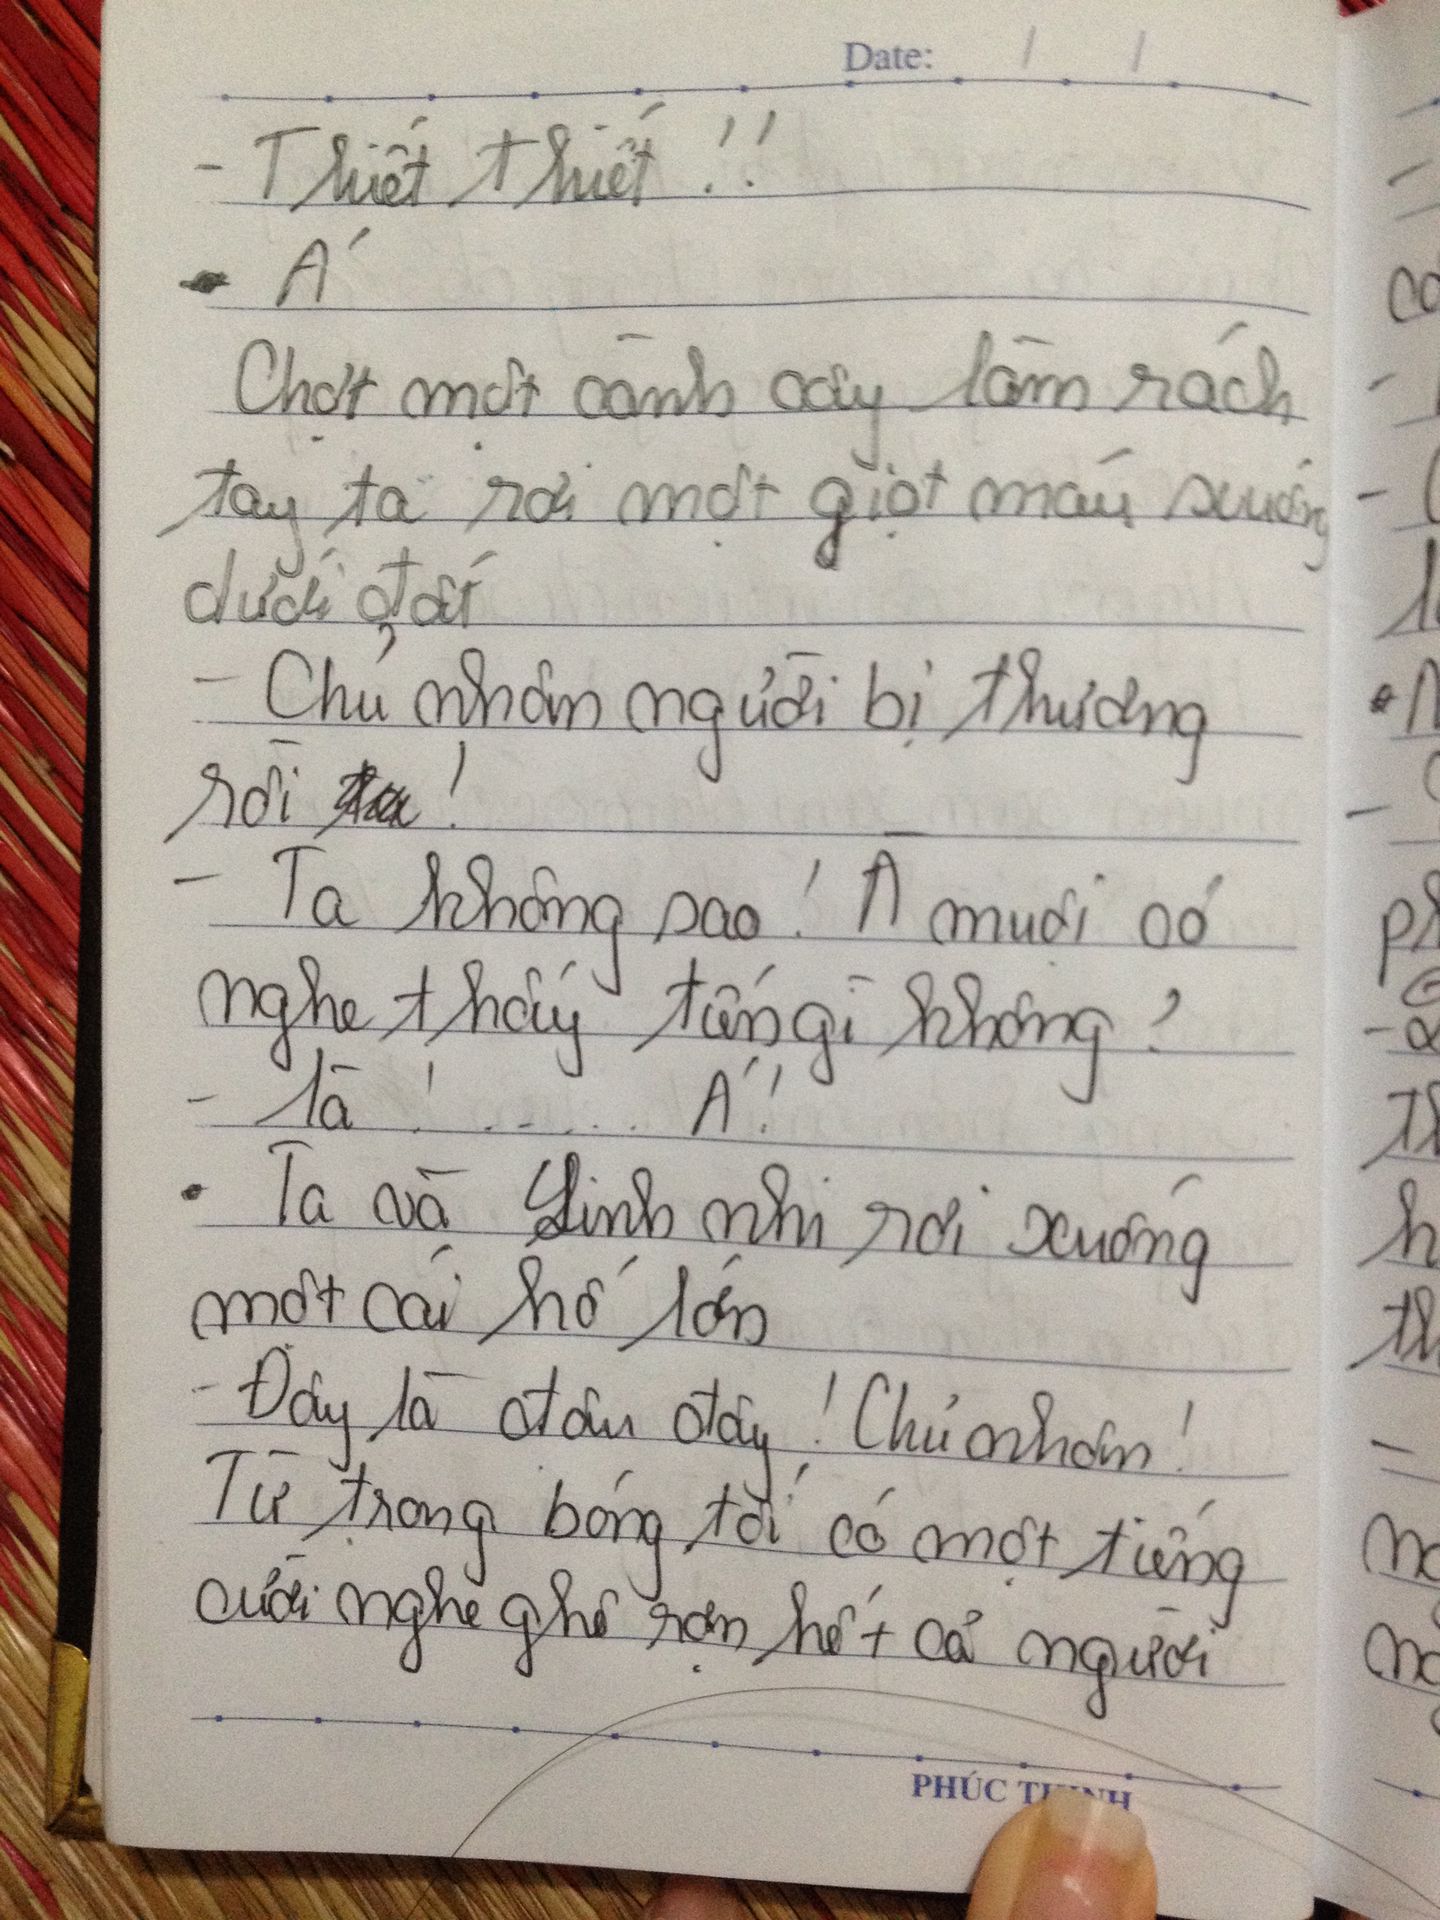 Date: / /
- Thiết thiết !!
- Á
Chợt một cành cây làm rách
tay ta rơi một giọt máu xuống
dưới đất
- Chủ nhân người bị thương
rồi !
- Ta không sao ! À muội có
nghe thấy tiếng gì không ?
- là ! ...... Á !
- Ta và Linh nhi rơi xuống
một cái hố lớn
- Đây là đâu đây ! Chủ nhân !
Từ trong bóng tối có một tiếng
cười nghe ghê rợn hết cả người
PHÚC THỊNH